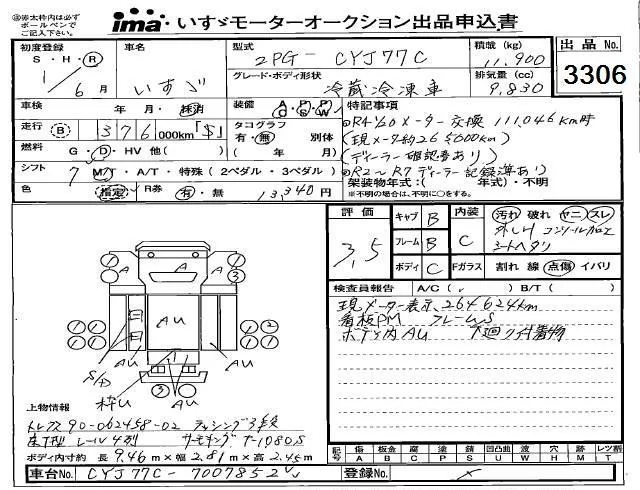 ※赤太枠内は必ずボールペンでご記入下さい。
ima いすゞモーターオークション出品申込書
初度登録 S・H・R 1年 6月
車名 いすゞ
型式 2PG-CYJ77C
積載 (kg) 11,900
出品 No. 3306
グレード・ボディ形状 冷蔵冷凍車
排気量 (cc) 9,830
車検 年 月 抹消
装備 A/C P/S P/W
特記事項
走行 (B) 1376 000km 「$」
タコグラフ 有・無 別体 ( 年 月)
◎R4 1/20 メーター交換 111,046km時
(現メーター約265000km)
(ディーラー確認書あり)
◎R2〜R7 ディーラー記録簿あり
燃料 G・D・HV 他( )
シフト 7 M/T・A/T・特殊 (2ペダル・3ペダル)
架装物年式:( 年式)・不明
※不明の場合は、不明に○をする。
色 指定 R券 有・無 13,340円
評価 3.5
キャブ B
フレーム B
ボディ C
内装 C
汚れ 破れ ヤニ スレ
外しH コンソール加工
シートヘタリ
Fガラス 割れ 線 点傷 イバリ
検査員報告 A/C( ) B/T( )
現メーター表示 264624km
看板PM フレームS
ボデ内AU 下廻り付着物
A A A
1 1 1 3
AU AU AU
1 1 1 2
1 1 1 1
S/A
枠U AU
3
上物情報
トレクス 90-062458-02 ラッシング3段
床下型 レール4列 サーモキング T-1080S
ボディ内寸約 長 9.46m×幅 2.81m×高 2.45m
記号 傷 A 板金 B 腐 C 凹 P 塗 S 錆 S 凹凸曲 U 波 W 穴 H 跡 M レツ割 T
車台No. CYJ77C-7007852
登録No.